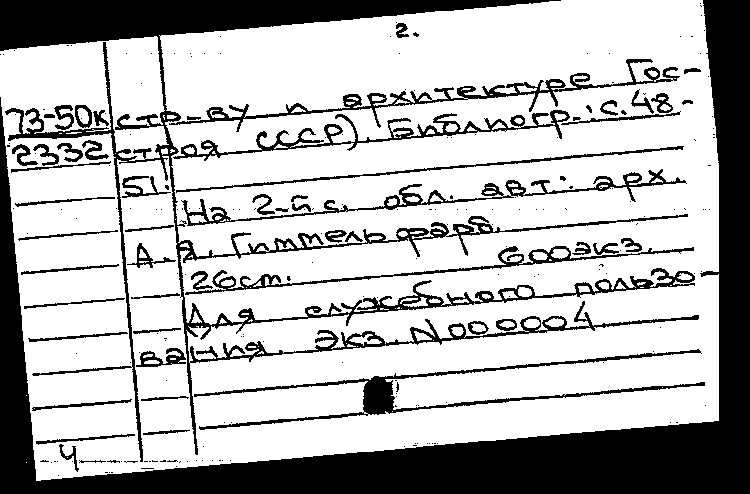 2.
73-50к стр-ву и архитектуре Гос-
2332 строя СССР). Библиогр.: с.48-
51!
На 2-й с. обл. авт.: арх.
А.Я. Гиммельфарб.
26см. 600экз.
Для служебного пользо-
вания. Экз. N000004
Ч